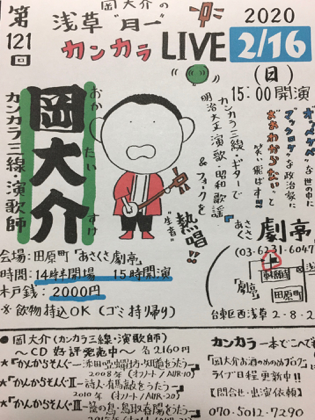 第121回
岡大介の
浅草"月一"
カンカラLIVE
2020
2/16
(日)
15:00開演
な世の中に
な政治家に
笑い飛ばす!!
カンカラ三線・ギターで
明治大正演歌・昭和歌謡
&フォークを
"生音"
熱唱!!
岡大介
おか たい すけ
カンカラ三線・演歌師
あさくさ
劇亭
(03-6231-6047)
会場:田原町「あさくさ劇亭」
時間:14時半開場 15時開演
木戸銭:2000円
※飲物持込OK(ゴミ持ち帰り)
「劇亭」
田原町
台東区西浅草2-8-2
★岡大介(カンカラ三線・演歌師)
~CD好評発売中~ 各2160円
★「かんからそんぐ
2008年(オフノート/AUR-10)
★「かんからそんぐⅡ
2010年(オフノート/AUR-20)
★「かんからそんぐⅢ
カンカラ一本でこへ
『岡大介お酒のためのブログ』
ライブ日程更新中!!
【問合せ・出演依頼】
070-5012-7290